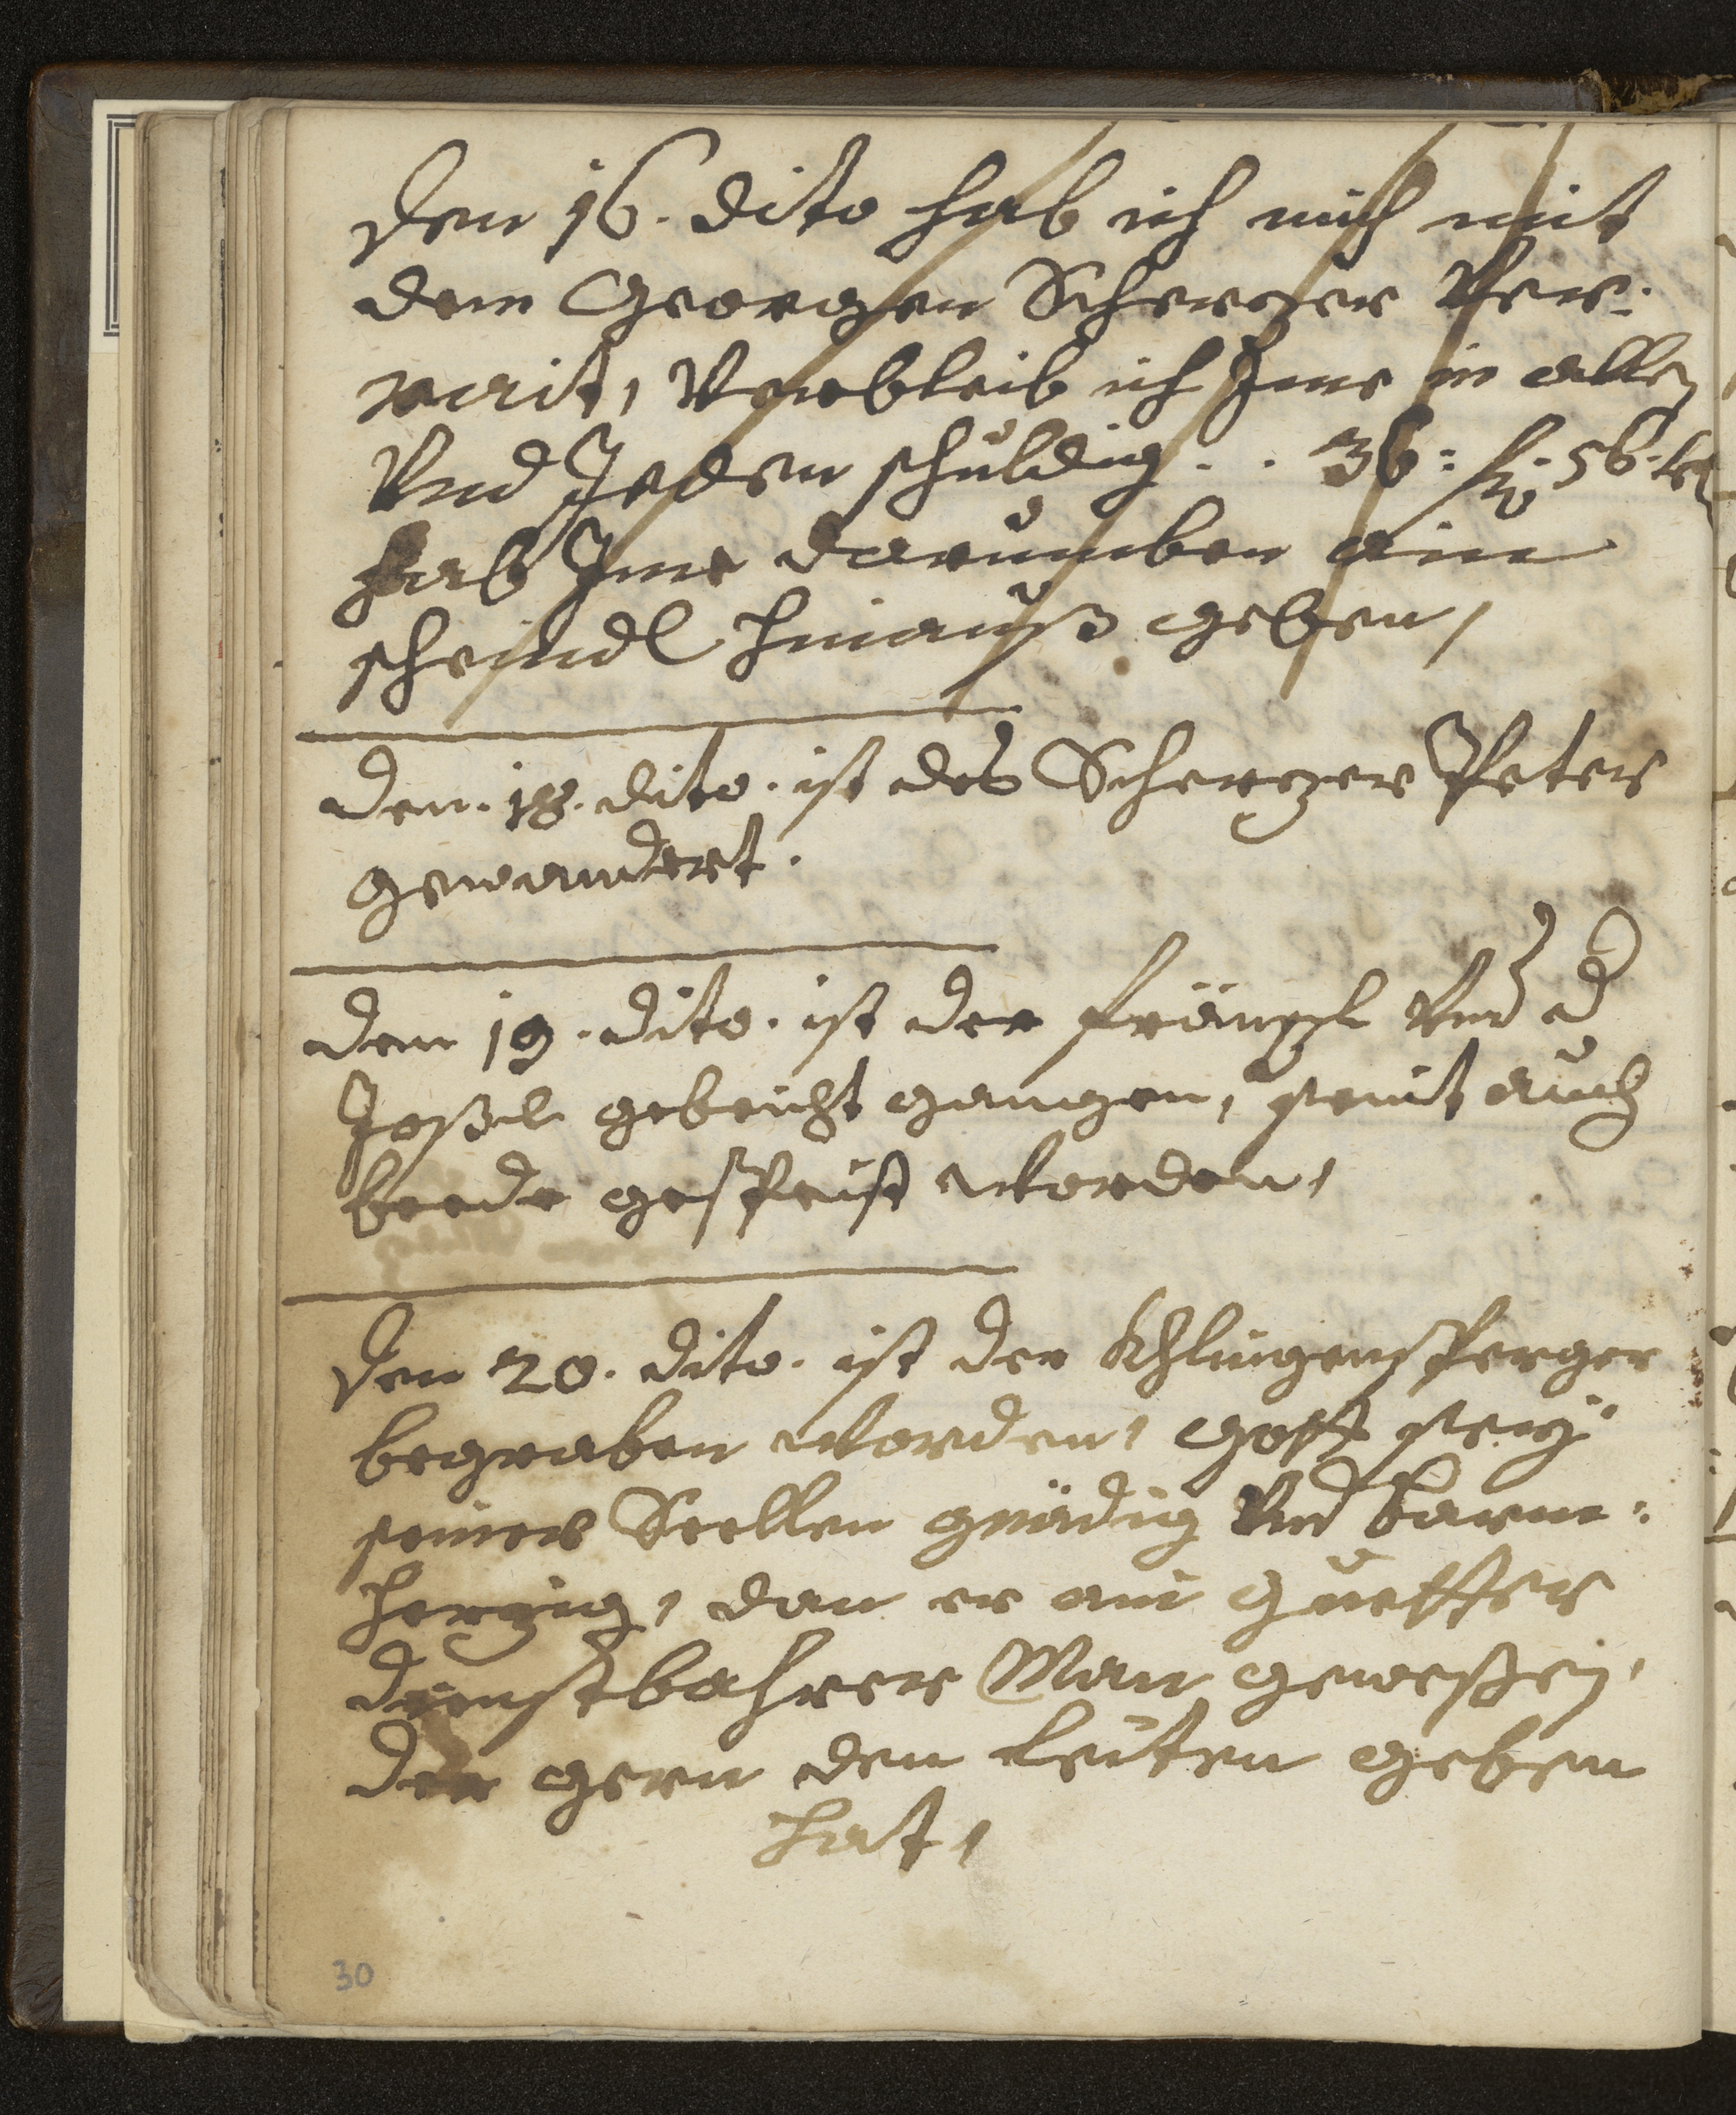 Den 16. dito hab ich mich mit
dem Georgen Scherzer Ver:
rait, Verbleib ich Ime in allen
Vnd Jeden schuldig . . 36: fl: 56. kr
hab Ime darumben ain
scheindl hinauß geben,
den. 18. dito. ist des Scherzer Peter
gewandert.
den 19. dito. ist der fränzl Vnd d
Joßel gebeicht gangen, seint auch
beede gespeist worden,
Den 20. dito. ist der Khlingensperger
begraben worden, gott seÿ
seiner Seellen gnädig Vnd barm:
herzig, dan er ein guetter
dienstbahrer Man geweßen,
der gern den leuten geben
hat,
30